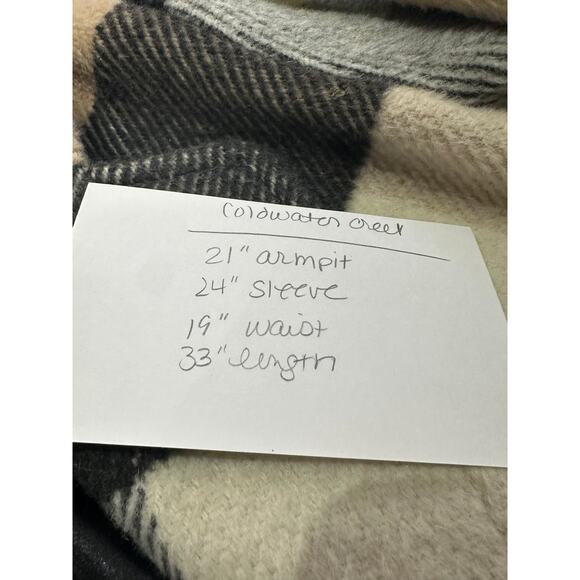 Coldwater Creek
21" armpit
24" sleeve
19" waist
33" length